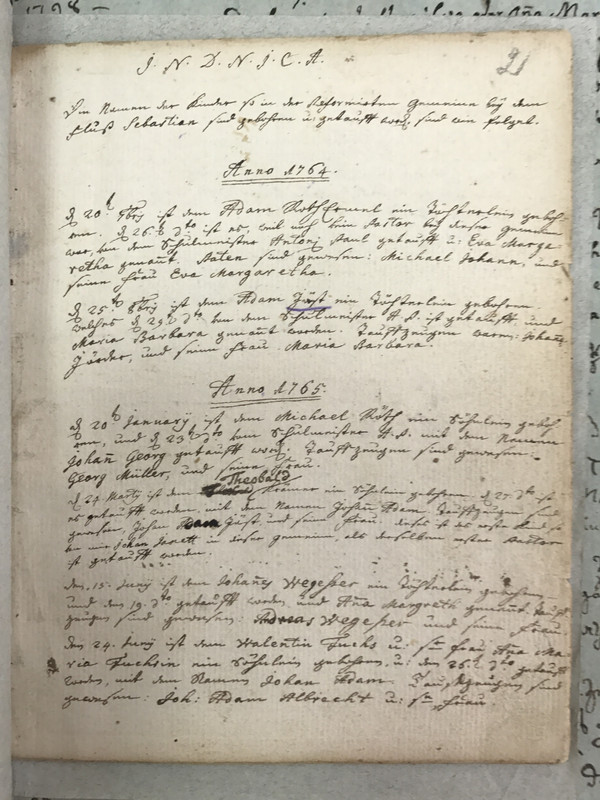 J. N. D. N. J. C. A.
21
Die Namen der Kinder so in der Reformirten Gemeine bey dem
Fluß Sebastian sind gebohren u: getaufft word. sind wie folget.
Anno 1764.
d. 20t 9brj ist dem Adam ein Töchterlein geboh-
ren. d. 26t dto ist es, weil noch kein Pastor bey dieser gemein
war, von dem Schulmeister Antonj Paul getaufft u: Eva Marga-
retha genañt. Paten sind gewesen: Michael Johann, und
seine Frau Eva Margaretha.
d. 25t 9brj ist dem Adam Jüst ein Töchterlein gebohren.
welches d. 29t dto von dem Schulmeister A. P. ist getaufft und
Maria Barbara genañt worden. Tauffzeugen waren: Johañ
Jörder, und seine Frau Maria Barbara.
Anno 1765.
d. 20t January ist dem Michael Röth ein Söhnlein geboh-
ren, und d. 23t dto vom Schulmeister A. P. mit dem Namen
Johañ Georg getaufft word. Tauffzeugen sind gewesen:
Georg Müller, und seine Frau.
Theobald
d. 24 Martij ist dem Kramer ein Söhnlein gebohren. d. 27 dto ist
es getaufft worden, mit dem Namen Johañ Adam. Tauffzeugen sind
gewesen, Johañ Adam Jüst und seine Frau. dieses ist das erste Kind so
von mir Johan in dieser gemein, als derselben erster Pastor
ist getaufft worden.
den 15. Junij ist dem Johañes Wegesser ein Töchterlein gebohren
und den 19. dto getaufft worden und Aña Margreth genañt. Tauff-
zeugen sind gewesen: Wegesser und seine Frau.
den 24. Junij ist dem Walentin Fuchs u: sr Frau, Aña Ma-
ria Fuchsin ein Söhnlein gebohren, u: den 26. dto getaufft
worden, mit dem Namen Johan Adam. Tauffzeugen sind
gewesen: Joh: Adam Albrecht u: sr Frau.